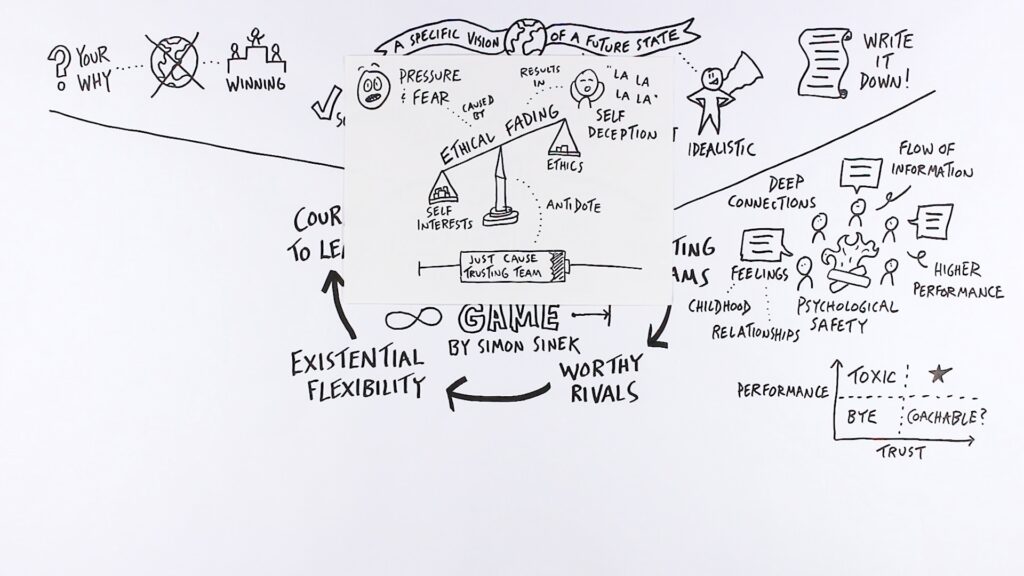 YOUR
WHY
WINNING
A SPECIFIC VISION OF A FUTURE STATE
IDEALISTIC
WRITE
IT
DOWN!
PRESSURE
& FEAR
CAUSED
BY
RESULTS
IN
"LA LA
LA LA"
SELF
DECEPTION
ETHICAL FADING
SELF
INTERESTS
ETHICS
ANTIDOTE
JUST CAUSE
TRUSTING TEAM
COUR
TO LEA
TING
AMS
GAME
BY SIMON SINEK
EXISTENTIAL
FLEXIBILITY
WORTHY
RIVALS
FLOW OF
INFORMATION
DEEP
CONNECTIONS
FEELINGS
CHILDHOOD
RELATIONSHIPS
PSYCHOLOGICAL
SAFETY
HIGHER
PERFORMANCE
PERFORMANCE
TOXIC
BYE
COACHABLE?
TRUST